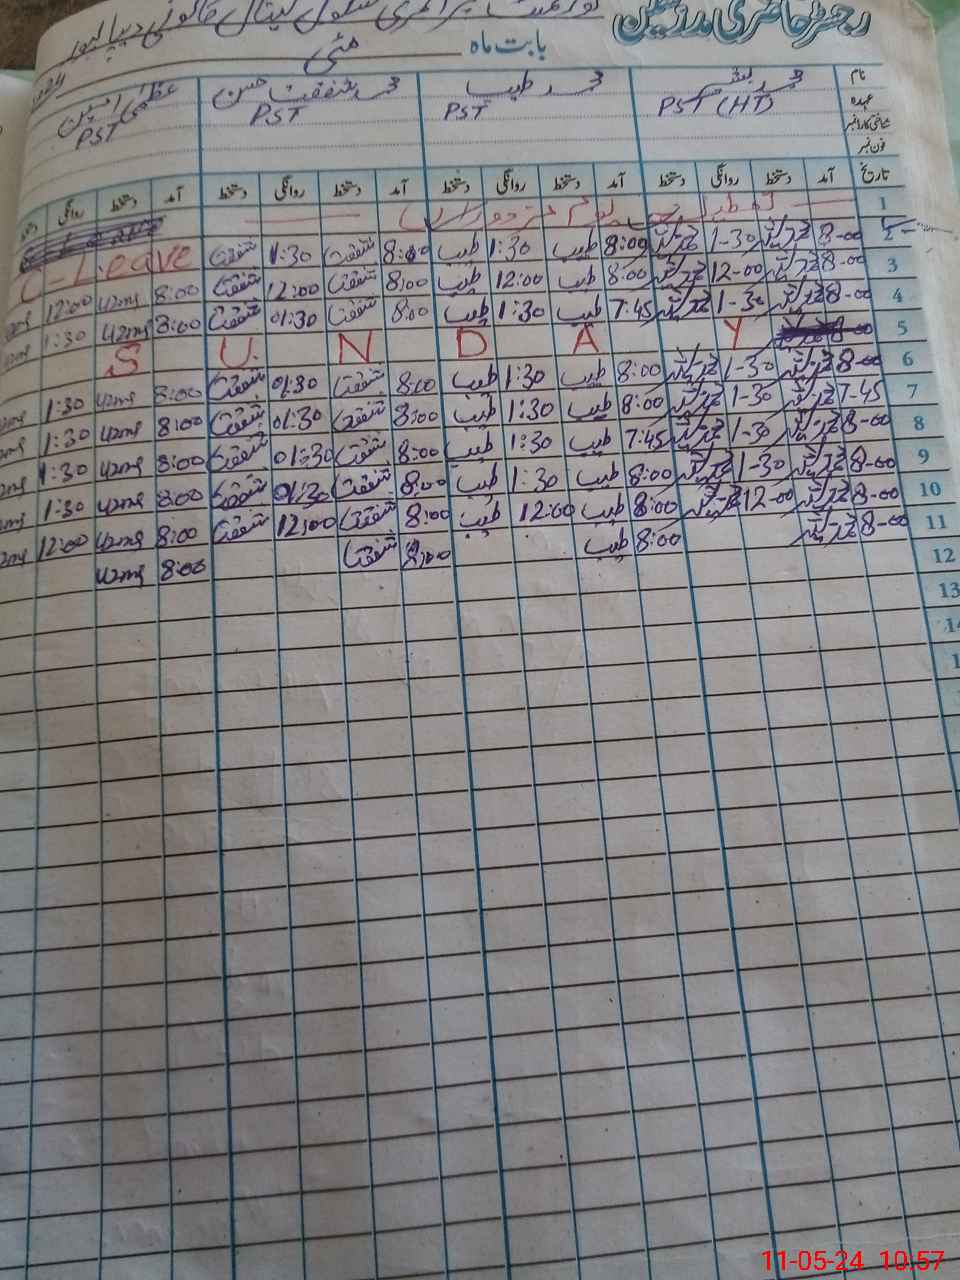 رجسٹر حاضری مدرسین
گورنمنٹ پرائمری سکول کینال کالونی دیپالپور
بابت ماہ مئی
نام محمد بشیر محمد طیب محمد شفقت حسن عظمیٰ امین
عہدہ PST (HT) PST PST PST
شناختی کارڈ نمبر
فون نمبر
تاریخ آمد دستخط روانگی دستخط آمد دستخط روانگی دستخط آمد دستخط روانگی دستخط آمد دستخط روانگی
1 یوم مزدوراں
2 8-00 1-30 8:00 طیب 1:30 طیب 8:00 شفقت 1:30 شفقت C-Leave
3 8-00 12-00 8:00 طیب 12:00 طیب 8:00 شفقت 12:00 شفقت 8:00 12:00
4 8-00 1-30 7:45 طیب 1:30 طیب 8:00 شفقت 01:30 شفقت 8:00 1:30
5 S U N D A Y
6 8-00 1-30 8:00 طیب 1:30 طیب 8:00 شفقت 01:30 شفقت 8:00 1:30
7 7-45 1-30 8:00 طیب 1:30 طیب 8:00 شفقت 01:30 شفقت 8:00 1:30
8 8-00 1-30 7:45 طیب 1:30 طیب 8:00 شفقت 01:30 شفقت 8:00 1:30
9 8-00 1-30 8:00 طیب 1:30 طیب 8:00 شفقت 01:30 شفقت 8:00 1:30
10 8-00 12-00 8:00 طیب 12:00 طیب 8:00 شفقت 12:00 شفقت 8:00 12:00
11 8-00 8:00 طیب 8:00 شفقت 8:00
12
13
14
11-05-24 10:57